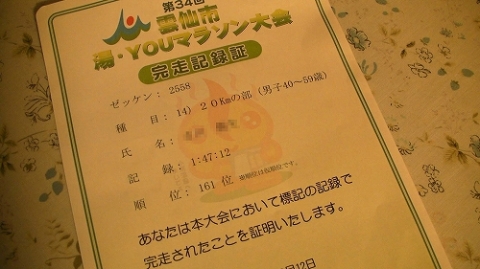 第34回
雲仙市
湯・YOUマラソン大会
完走記録証
ゼッケン： 2558
種 目： 14) 20Kmの部 (男子40～59歳)
氏 名：
記 録： 1:47:12
順 位： 161 位
あなたは本大会において標記の記録で
完走されたことを証明いたします。
月12日